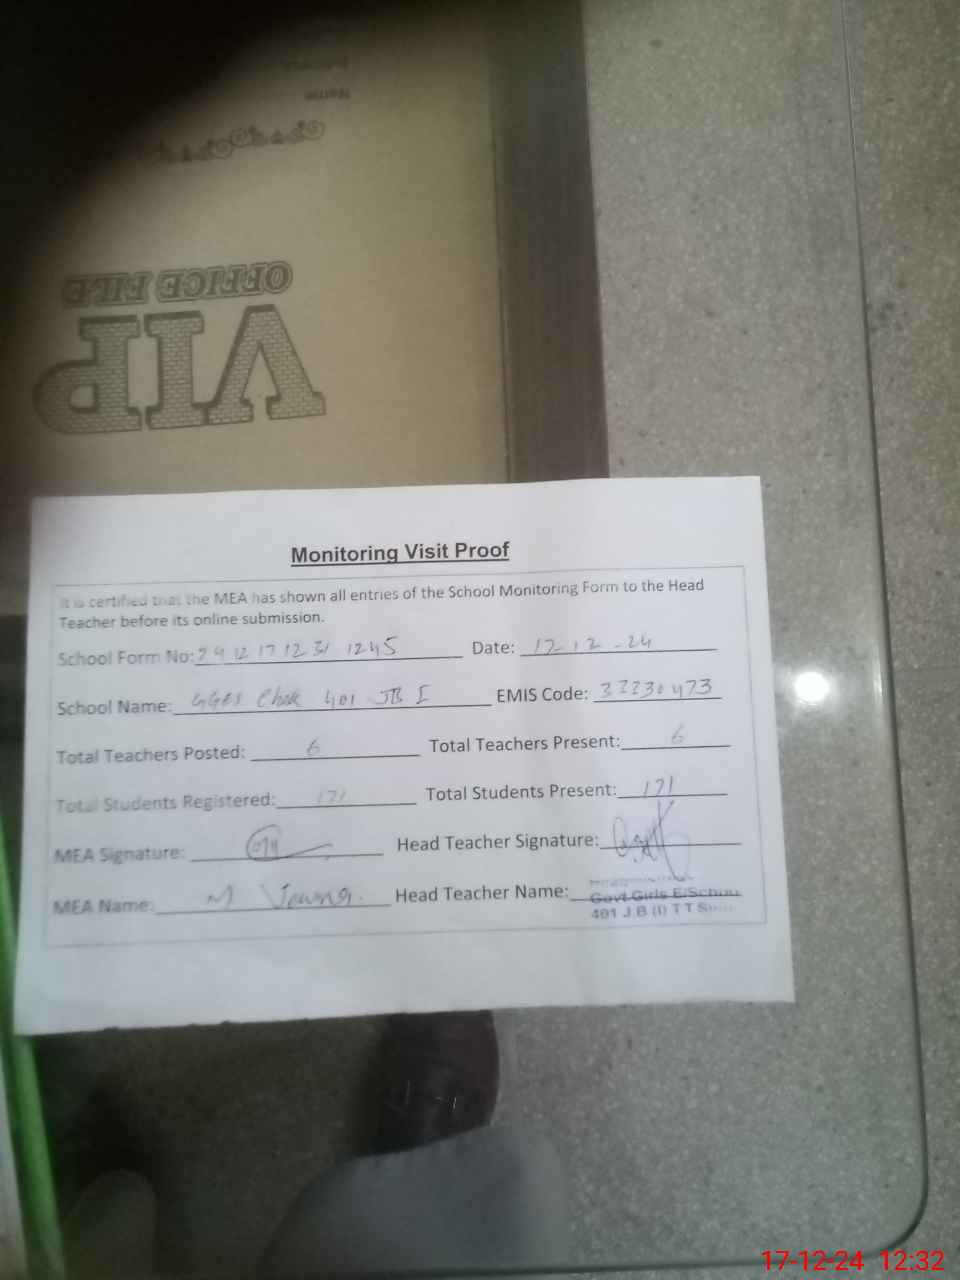 Name
OFFICE FILE
VIP
Monitoring Visit Proof
It is certified that the MEA has shown all entries of the School Monitoring Form to the Head
Teacher before its online submission.
School Form No: Date: 17-12-24
School Name: GGES Chak 401 JB I EMIS Code:
Total Teachers Posted: 6 Total Teachers Present: 6
Total Students Registered: 171 Total Students Present: 171
MEA Signature: Head Teacher Signature:
MEA Name: M Head Teacher Name:
Govt Girls E/School
401 J.B (I) T T S
17-12-24 12:32